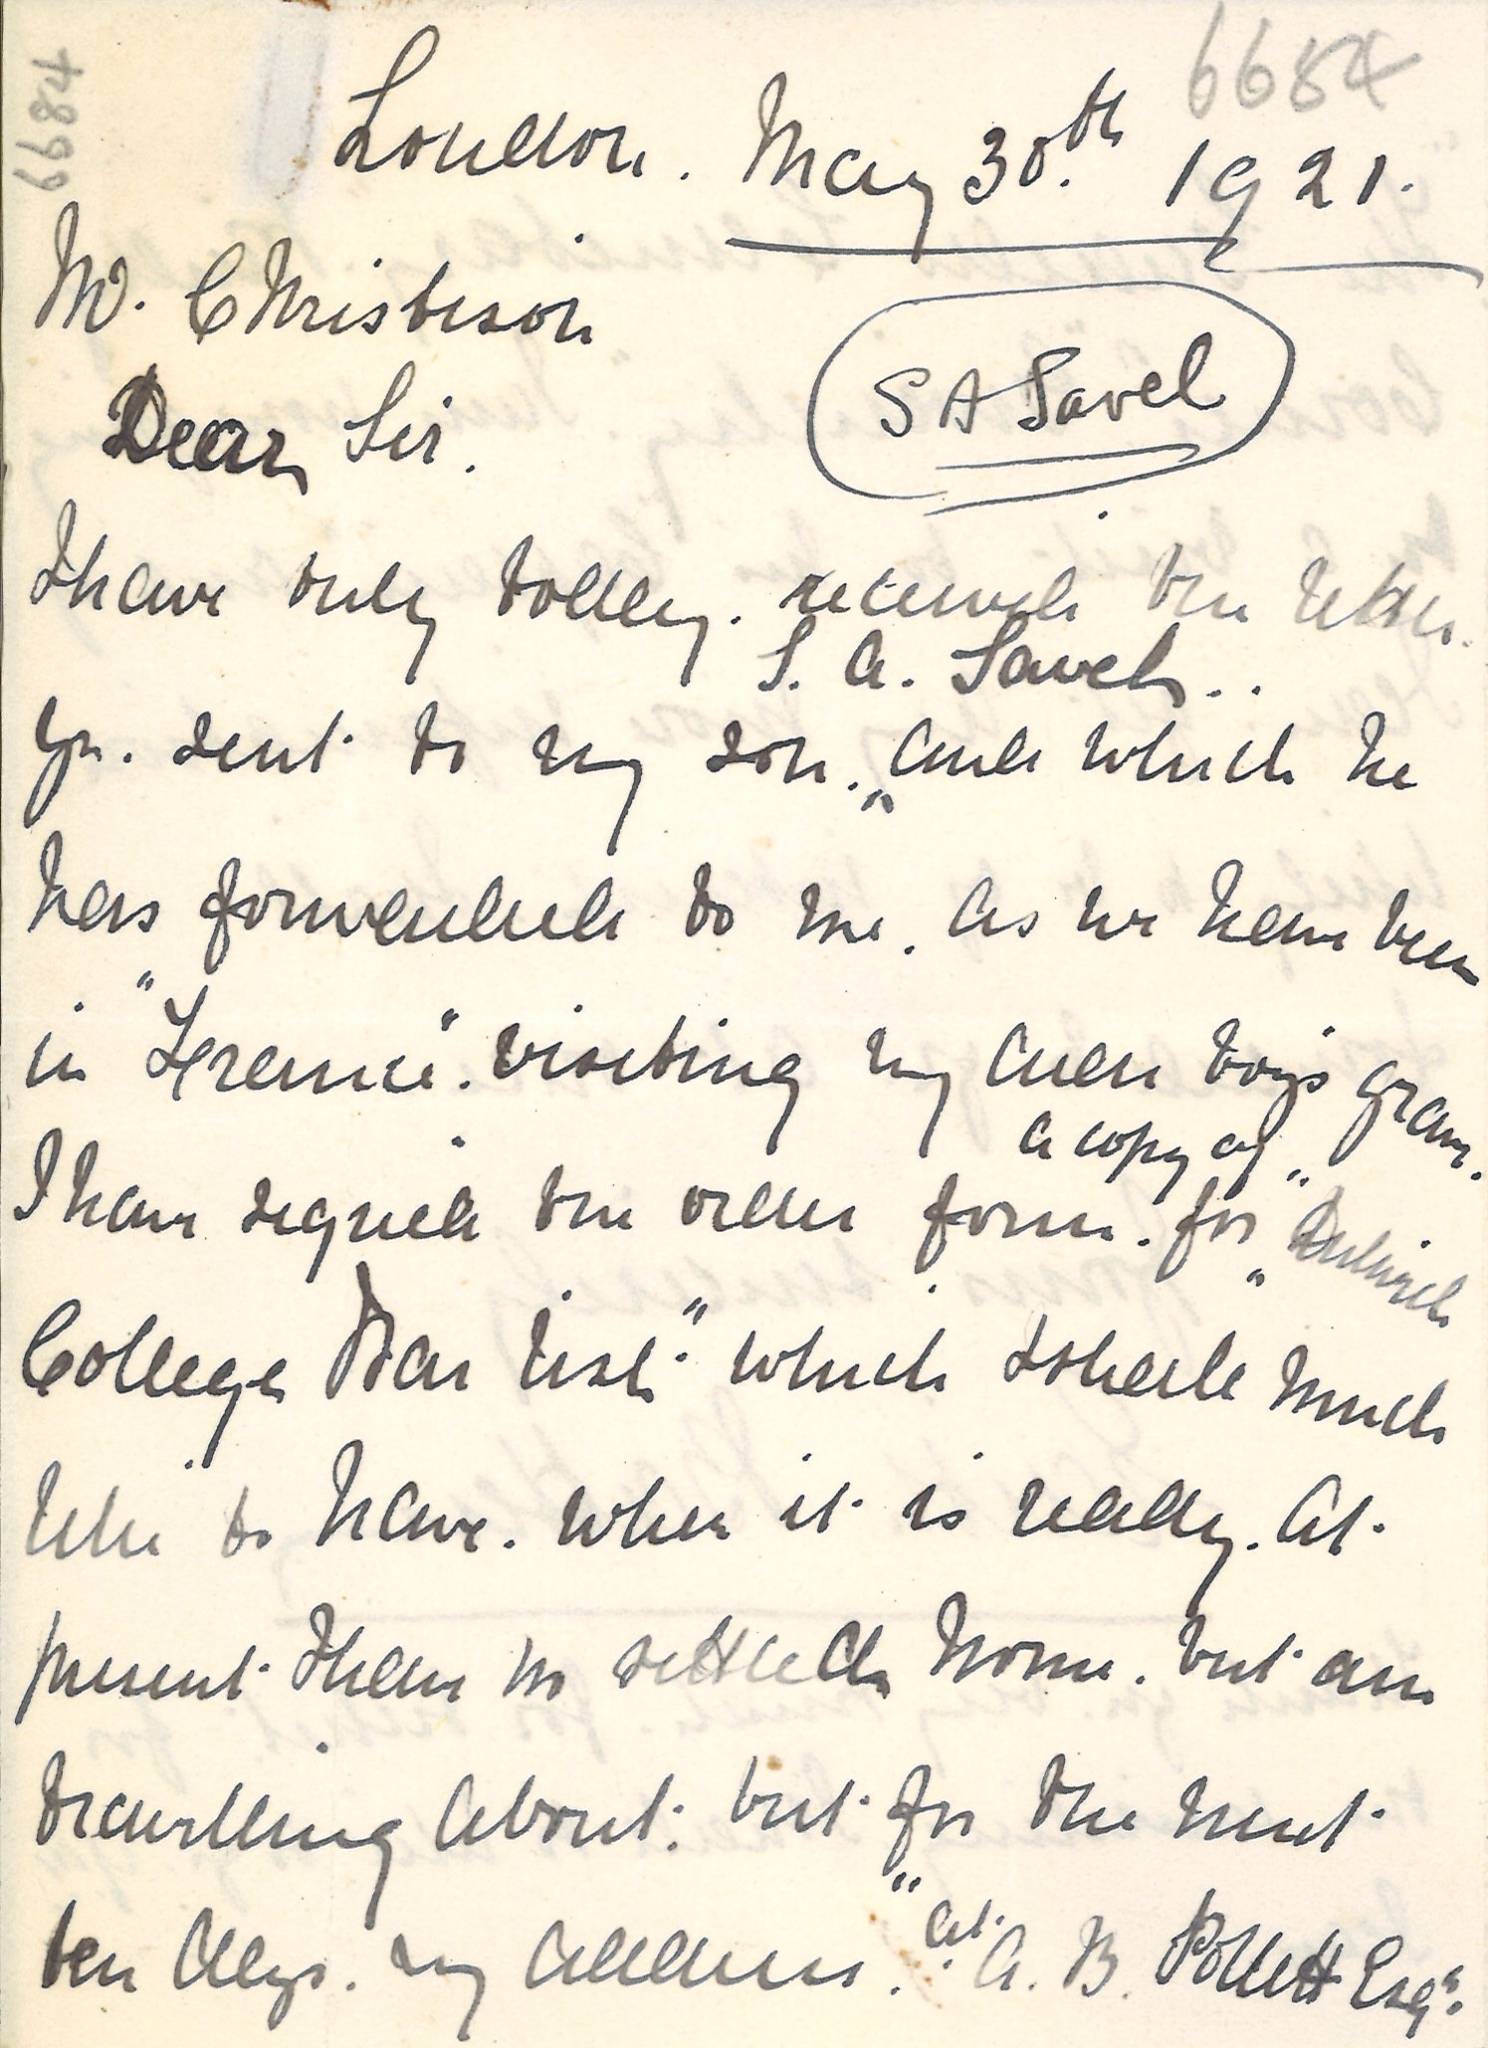 6684
6684
London. May 30th. 1921.
Mr. Christison
S A Savel
Dear Sir.
I have only today. received the letter.
S. A. Savel..
yr. sent to my son. " and which he
has forwarded to me. As we have been
in "France". visiting my dear boy's grave.
a copy of
I have signed the order form. for " "Dulwich
College War List" which I shall much
like to have. when it is ready. At
present I have no settled home. but am
travelling about. but for the next
ten days. my address. "at. A. B. Pollett Esq".